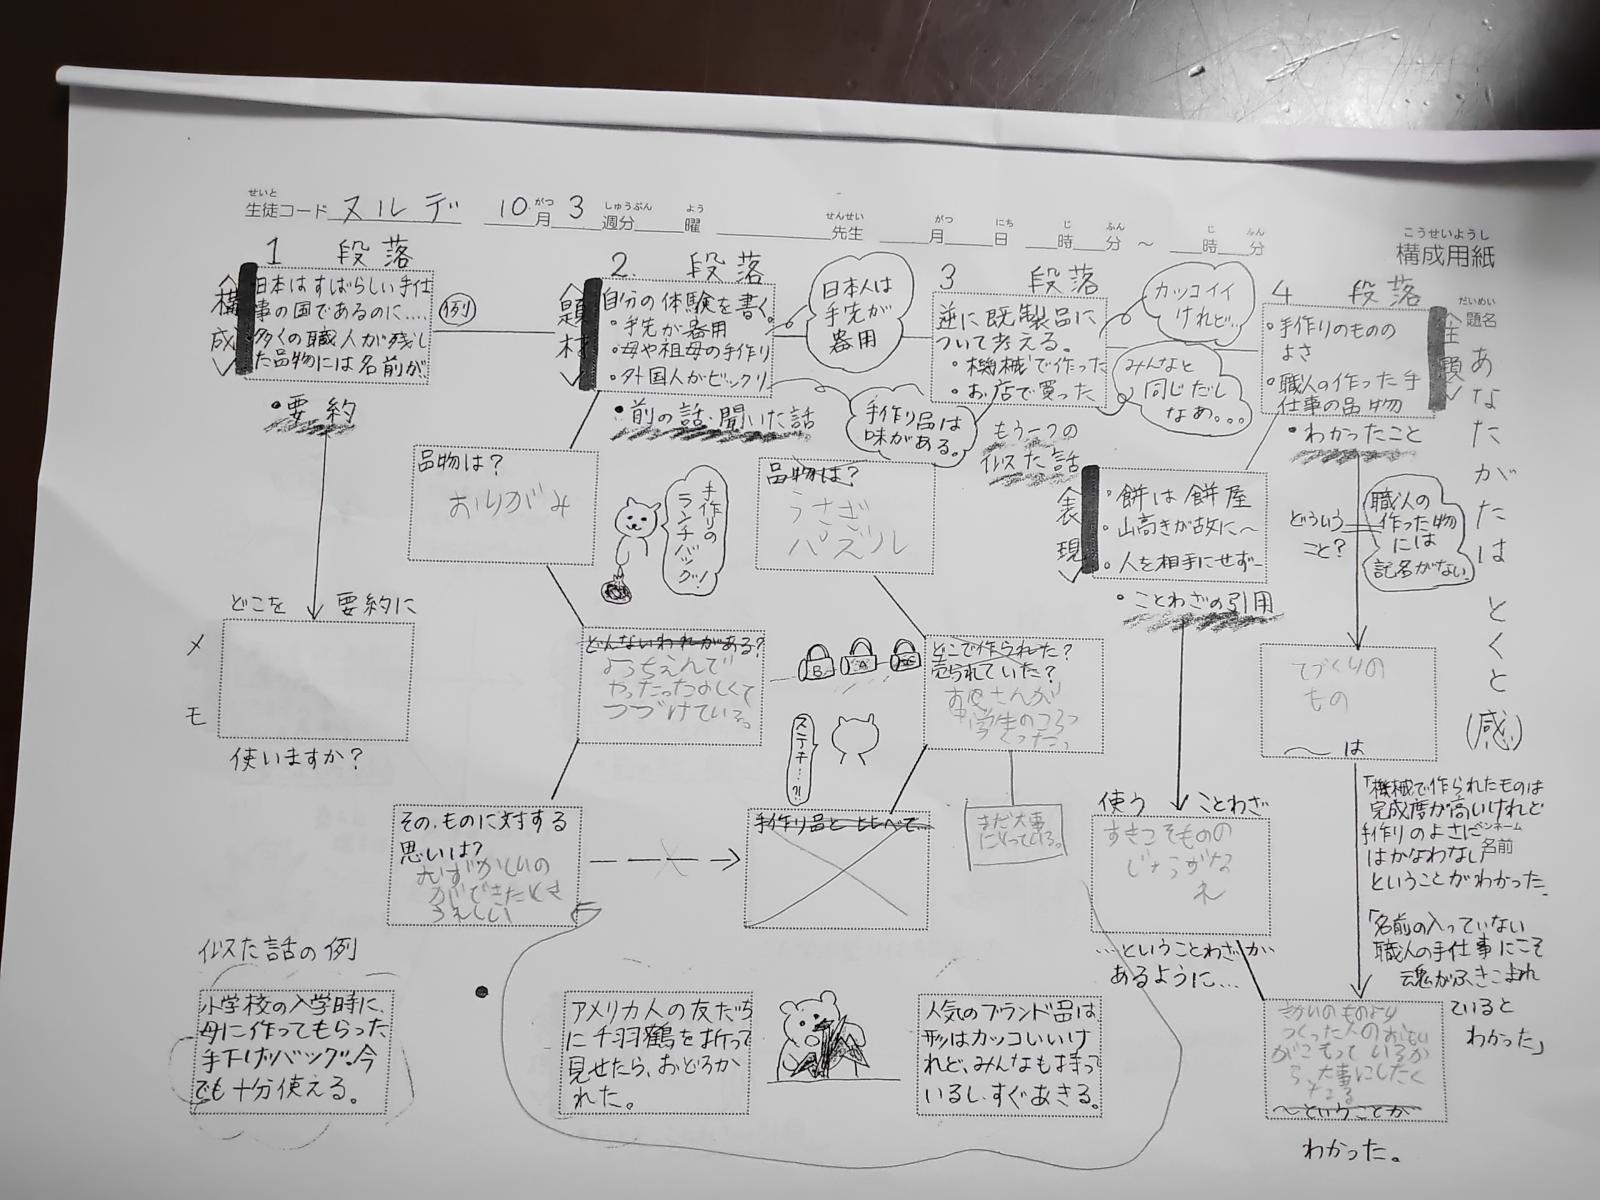 せいと
生徒コード ヌルデ 10月 3週分 曜 先生 月 日 時 分 ～ 時 分
がつ しゅうぶん よう せんせい がつ にち じ ふん じ ふん
こうせいようし
構成用紙
だいめい
題名
あなたがたはとくと(感)
1 段落
〈構成〉
日本はすばらしい手仕
事の国であるのに....
多くの職人が残し
た品物には名前が
・要約
例
どこを 要約に
使いますか?
メモ
2. 段落
〈題材〉
自分の体験を書く。
・手先が器用
・母や祖母の手作り
・外国人がビックリ
・前の話・聞いた話
日本人は
手先が
器用
手作り品は
味がある。
品物は?
おりがみ
手作りの
ランチバック!
どんないわれがある?
ようちえんで
やったったのしくて
つづけている。
その、ものに対する
思いは?
むずかしいの
ができたとき
うれしい
3 段落
逆に既製品に
ついて考える。
・機械で作った
・お店で買った
カッコイイ
けれど...
みんなと
同じだし
なぁ...
もう一つの
似た話
品物は?
うさぎ
パズル
B A C
ステキ...?!
どこで作られた?
売られていた?
お兄さんが
中学生のころ
つくった。
手作り品と比べて...
まだ大事
にとっている。
4 段落
〈主題〉
・手作りのものの
よさ
・職人の作った手
仕事の品物
・わかったこと
どういう
こと?
職人の
作った物
には
記名がない。
〈表現〉
・餅は餅屋
・山高きが故に～
・人を相手にせず～
・ことわざの引用
使う ことわざ
すきこそものの
じょうずな
れ
...ということわざが
あるように...
てづくりの
もの
～は
「機械で作られたものは
完成度が高いけれど
手作りのよさに
はかなわない」
ということがわかった。
ペンネーム
名前
「名前の入っていない
職人の手仕事にこそ
魂がふきこまれ
ていると
わかった」
きかいのものより
つくった人のおもい
がこもっているか
ら、大事にしたく
なる
～ということが
わかった。
似た話の例
小学校の入学時に、
母に作ってもらった
手下げバッグ。今
でも十分使える。
アメリカ人の友だち
に千羽鶴を折って
見せたら、おどろか
れた。
人気のブランド品は
形はカッコいいけ
れど、みんなも持って
いるし、すぐあきる。